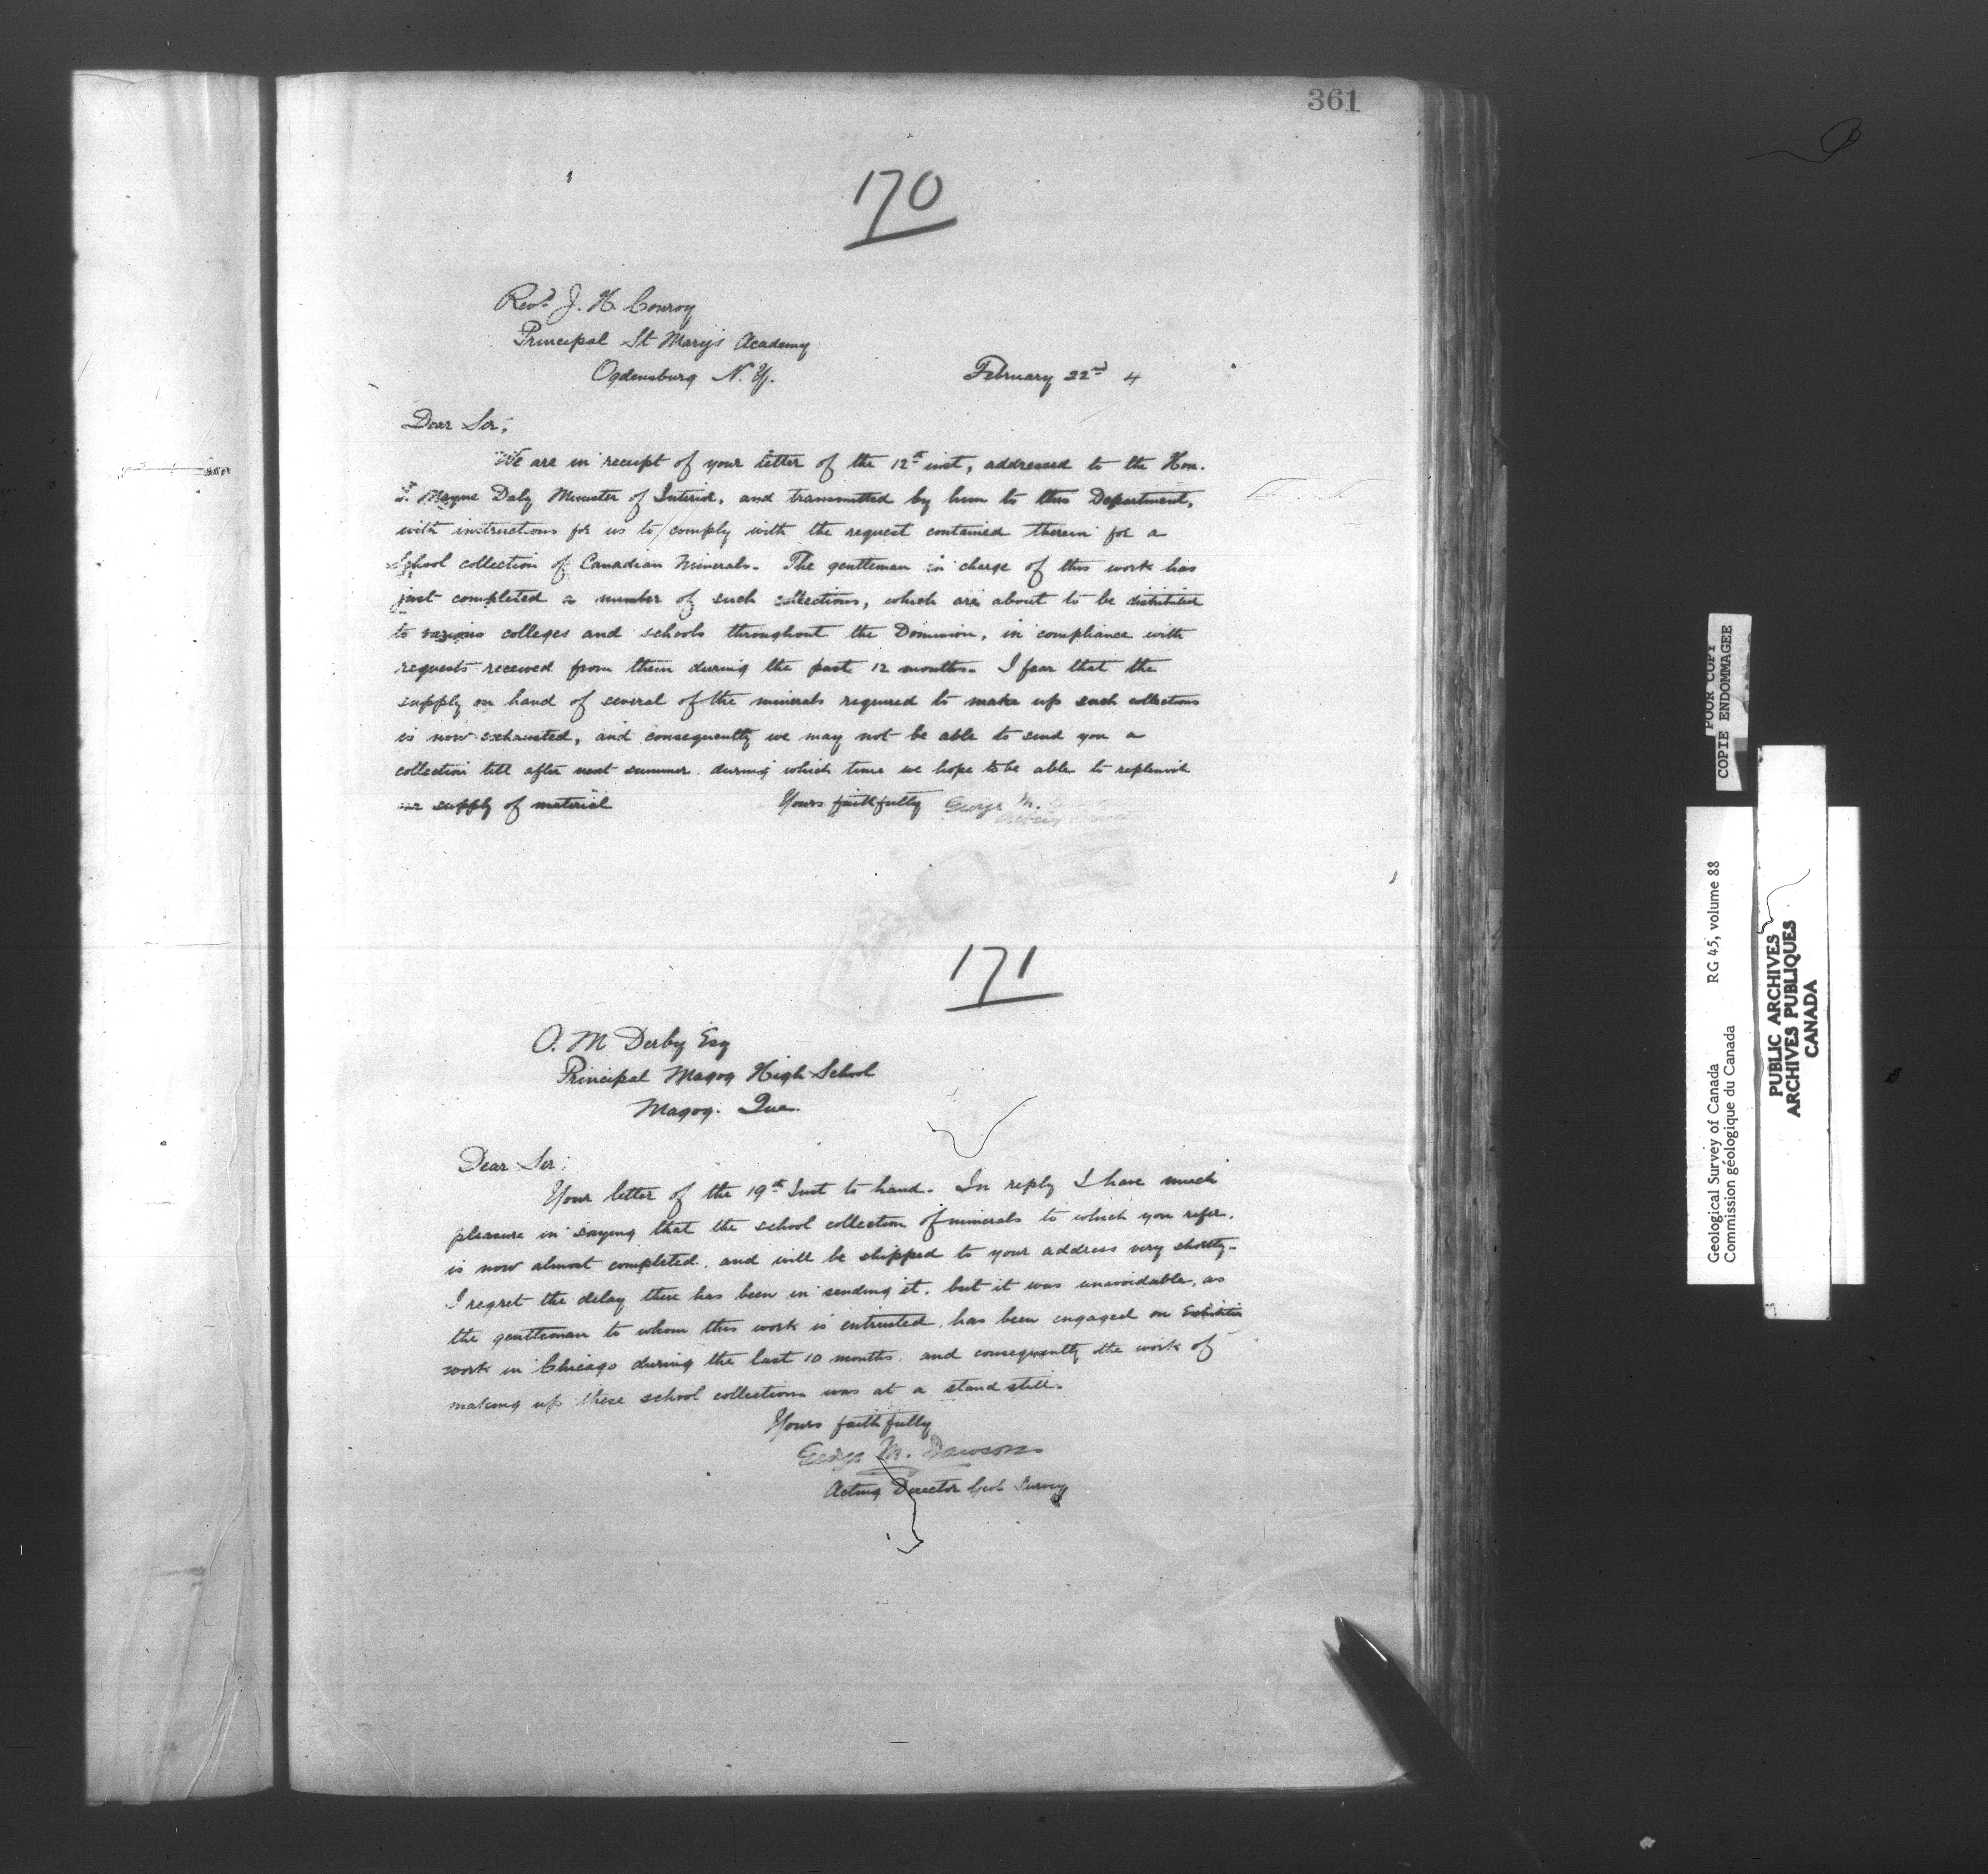 361
170
Revd. J. H. Conroy
Principal St Mary's Academy
Ogdensburg N. Y.
February 22nd 4
Dear Sir;
We are in receipt of your letter of the 12th inst, addressed to the Hon.
T. Mayne Daly Minister of Interior, and transmitted by him to this Department,
with instructions for us to comply with the request contained therein for a
School collection of Canadian Minerals. The gentleman in charge of this work has
just completed a number of such collections, which are about to be distributed
to various colleges and schools throughout the Dominion, in compliance with
requests received from them during the past 12 months. I fear that the
supply on hand of several of the minerals required to make up such collections
is now exhausted, and consequently we may not be able to send you a
collection till after next summer. during which time we hope to be able to replenish
our supply of material
Yours faithfully George M.
171
O. M Derby Esq
Principal Magog High School
Magog. Que.
Dear Sir;
Your letter of the 19th Inst to hand. In reply I have much
pleasure in saying that the school collection of minerals to which you refer.
is now almost completed. and will be shipped to your address very shortly.
I regret the delay there has been in sending it. but it was unavoidable, as
the gentleman to whom this work is entrusted. has been engaged on Exhibition
work in Chicago during the last 10 months. and consequently the work of
making up these school collections was at a stand still.
Yours faithfully
George M. Dawson
Acting Director Geol Survey
POOR COPY
COPIE ENDOMMAGEE
Geological Survey of Canada RG 45, volume 88
Commission géologique du Canada
PUBLIC ARCHIVES
ARCHIVES PUBLIQUES
CANADA